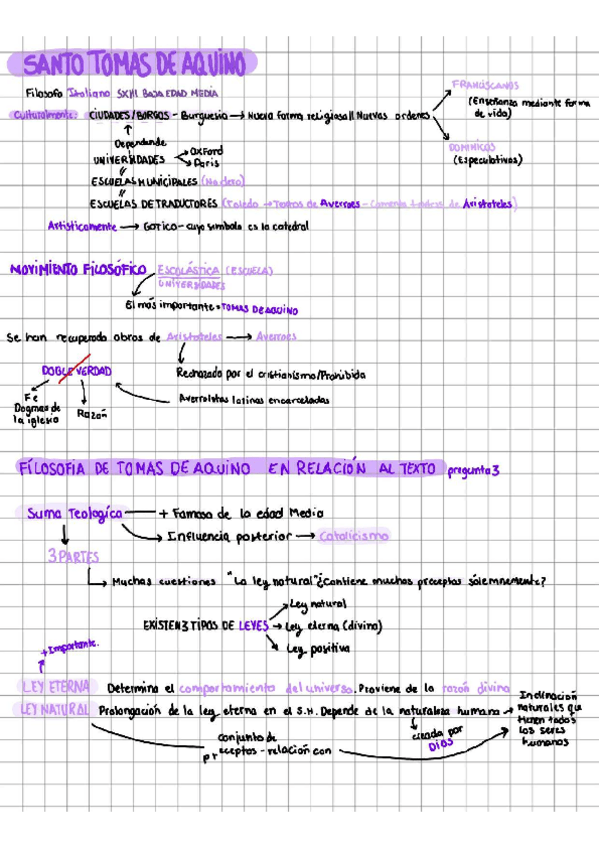 SANTO TOMAS DE AQUINO
Filosofo Italiano SXIII BAJA EDAD MEDIA
FRANCISCANOS
(Enseñanza mediante forma
de vida)
Culturalmente: CIUDADES/BORGOS - Burguesia → Nueva forma religiosa || Nuevas ordenes
DOMINICOS
(Especulativos)
Dependende
UNIVERSIDADES → Oxford
→ Paris
ESCUELAS MUNICIPALES (No clero)
ESCUELAS DE TRADUCTORES (Toledo → Textos de Averroes - Comenta textos de Aristoteles)
Artisticamente → GOTICO - cuyo simbolo es la catedral
MOVIMIENTO FILOSÓFICO ESCOLÁSTICA (ESCUELA)
UNIVERSIDADES
El más importante = TOMAS DE AQUINO
Se han recuperado obras de Aristoteles → Averroes
DOBLE VERDAD
Rechazado por el cristianismo/Prohibida
Fe
Dogmas de
la iglesia
Razón
Averroistas latinas encarceladas
FILOSOFIA DE TOMAS DE AQUINO EN RELACIÓN AL TEXTO pregunta 3
Suma Teologica + Famosa de la edad Media
→ Influencia posterior → Catolicismo
3 PARTES
→ Muchas cuestiones "La ley natural" ¿Contiene muchos preceptos sólemnemente?
EXISTEN 3 TIPOS DE LEYES → Ley natural
→ Ley eterna (divina)
→ Ley positiva
+ Importante.
LEY ETERNA Determina el comportamiento del universo. Proviene de la razón divina
LEY NATURAL Prolongación de la ley eterna en el S.H. Depende de la naturaleza humana →
Inclinación
naturales que
tienen todos
los seres
humanos
creada por
DIOS
conjunto de
preceptos - relación con